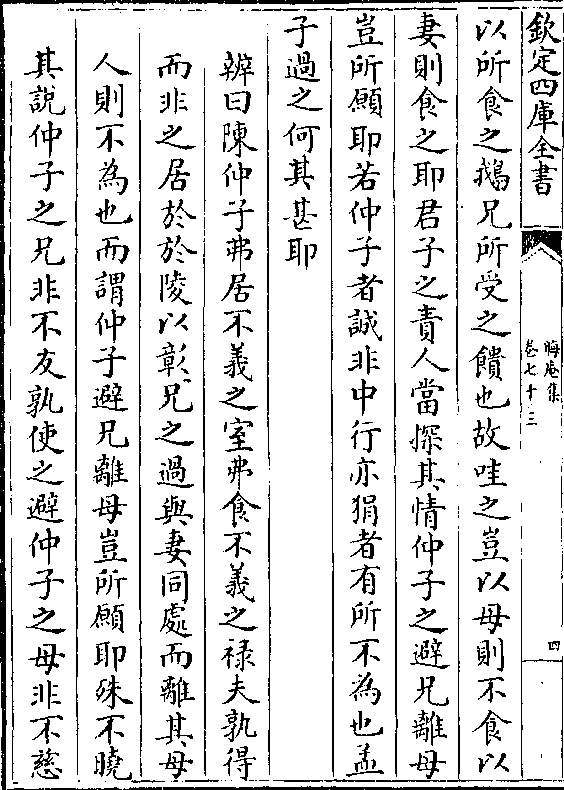 欽定四庫全書
晦庵集
卷七十三
四
以所食之鵝兄所受之饋也故哇之豈以母則不食以
妻則食之耶君子之責人當探其情仲子之避兄離母
豈所願耶若仲子者誠非中行亦狷者有所不為也孟
子過之何其甚耶
辨曰陳仲子弗居不義之室弗食不義之禄夫孰得
而非之居於於陵以彰兄之過與妻同處而離其母
人則不為也而謂仲子避兄離母豈所願耶殊不曉
其説仲子之兄非不友孰使之避仲子之母非不慈